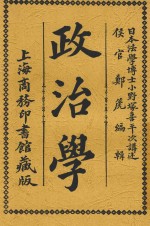 日本法學博士小野塚喜平次講述
侯官鄭篪編輯
政治學
上海商務印書館藏版